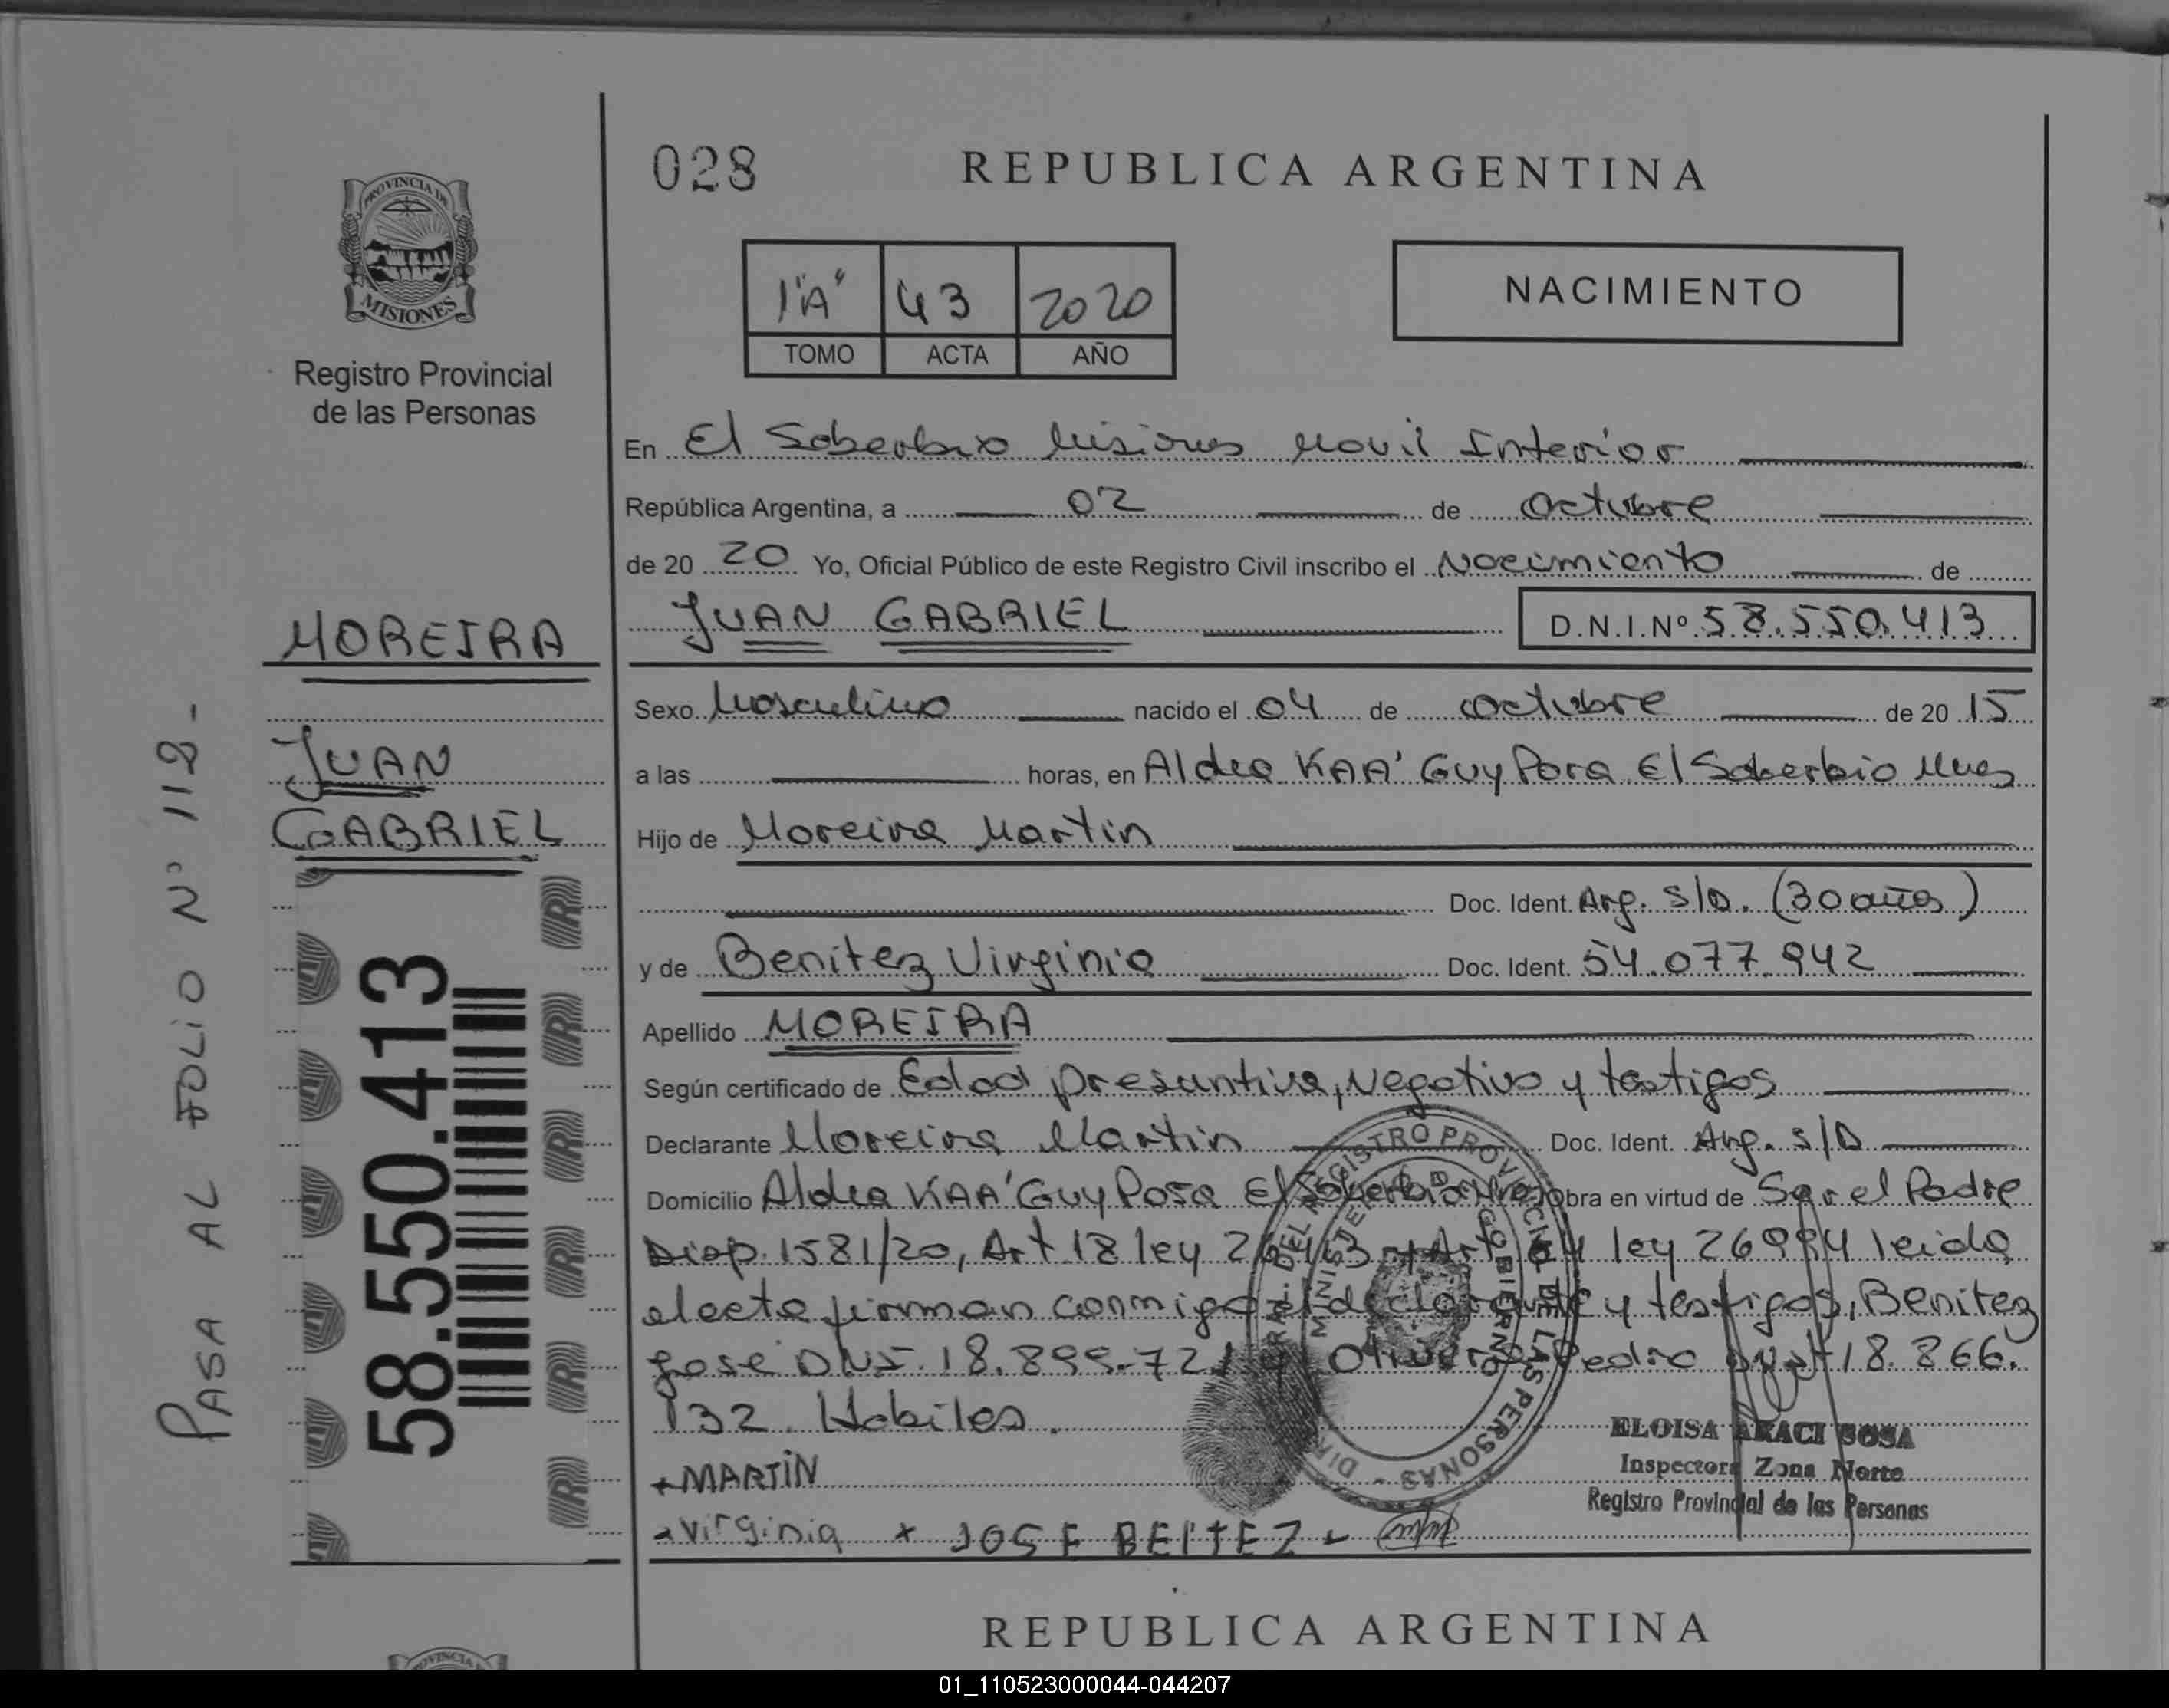 028
REPUBLICA ARGENTINA
PROVINCIA DE
MISIONES
Registro Provincial
de las Personas
1"A" 43 2020
TOMO ACTA AÑO
NACIMIENTO
En El Soberbio Misiones Movil Interior
República Argentina, a 02 de octubre
de 20 20 Yo, Oficial Público de este Registro Civil inscribo el Nacimiento de
JUAN GABRIEL D.N.I.Nº 58.550.413
Sexo Masculino nacido el 04 de octubre de 20 15
a las horas, en Aldea KAA' Guy Pora El Soberbio Mnes
Hijo de Moreira Martin
Doc. Ident. Arg. S/D. (30 años)
y de Benitez Virginia Doc. Ident. 54.077.942
Apellido MOREIRA
Según certificado de Edad presuntiva, Negativo y testigos
Declarante Moreira Martin Doc. Ident. Arg. S/D
Domicilio Aldea KAA' Guy Pora El Soberbio Obra en virtud de Ser el Padre
Disp. 1581/20, Art 18 ley Art ley 26994 leida
el acta firman conmigo el declarante y testigos, Benitez
Jose DNI. 18. Pedro 18.866.
132. Habiles.
+MARTIN
virginia + JOSE BEITEZ
ELOISA ARACI SOSA
Inspectora Zona Norte
Registro Provincial de las Personas
DIR. GRAL. DEL REGISTRO PROVINCIAL DE LAS PERSONAS
MINISTERIO DE GOBIERNO
MOREIRA
JUAN
GABRIEL
58.550.413
PASA AL FOLIO Nº 112-
REPUBLICA ARGENTINA
01_110523000044-044207